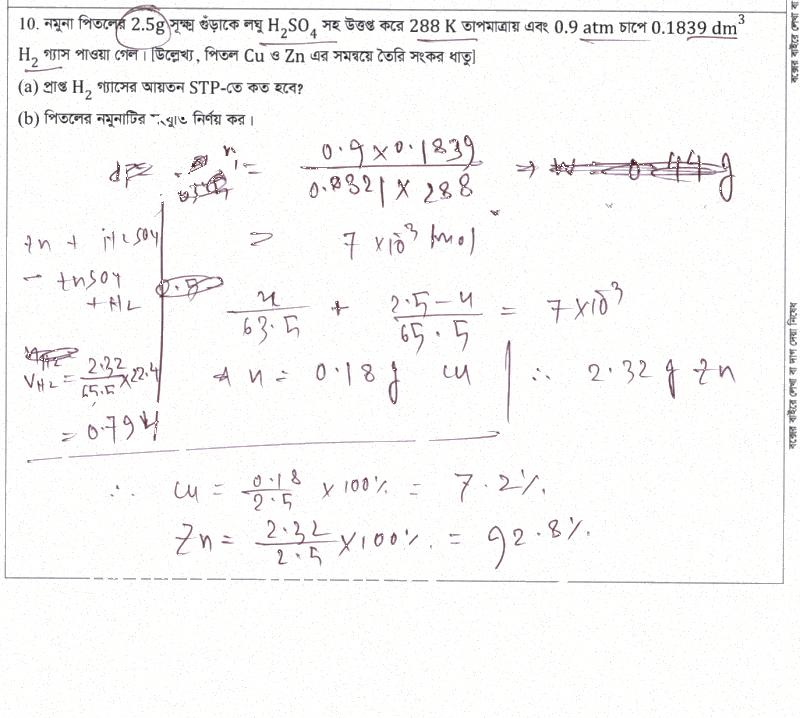 10. নমুনা পিতলের 2.5g সূক্ষ্ম গুঁড়াকে লঘু H₂SO₄ সহ উত্তপ্ত করে 288 K তাপমাত্রায় এবং 0.9 atm চাপে 0.1839 dm³
H₂ গ্যাস পাওয়া গেল। [উল্লেখ্য, পিতল Cu ও Zn এর সমন্বয়ে তৈরি সংকর ধাতু]
(a) প্রাপ্ত H₂ গ্যাসের আয়তন STP-তে কত হবে?
(b) পিতলের নমুনাটির নির্ণয় কর।
= 0.9 × 0.1839 / 0.0821 × 288
= 7 × 10⁻³ mol
Zn + H₂SO₄
→ ZnSO₄
+ H₂
x / 63.5 + 2.5 - x / 65.5 = 7 × 10⁻³
V H₂ = 2.32 / 65.5 × 22.4
= 0.794
x = 0.18 g Cu
∴ 2.32 g Zn
∴ Cu = 0.18 / 2.5 × 100% = 7.2%
Zn = 2.32 / 2.5 × 100% = 92.8%
বক্সের বাইরে লেখা বা দাগ দেয়া নিষেধ
বক্সের বাইরে লেখা বা